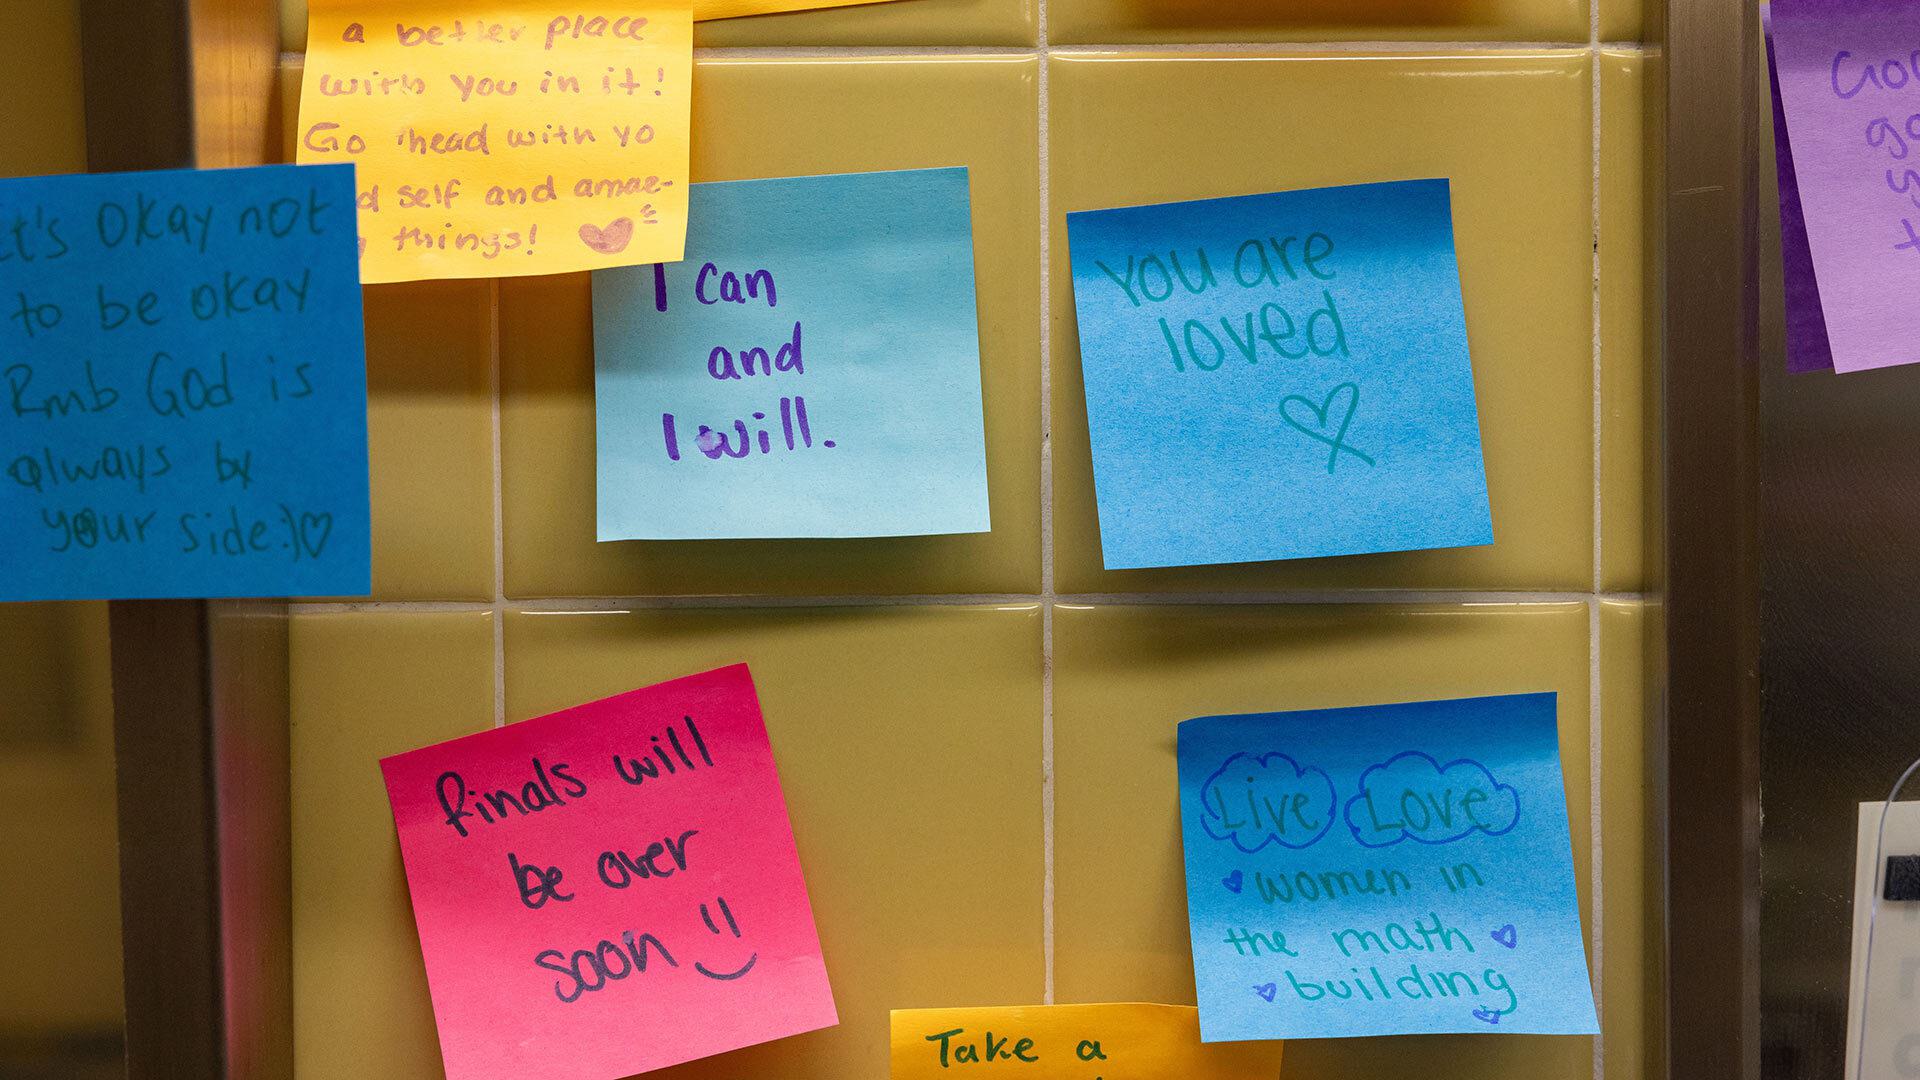 a better place
with you in it!
Go head with yo
d self and amae-
things!
it's okay not
to be okay
Rmb God is
always by
your side:)♡
I can
and
I will.
You are
loved
finals will
be over
soon
Live Love
women in
the math
building
Take a